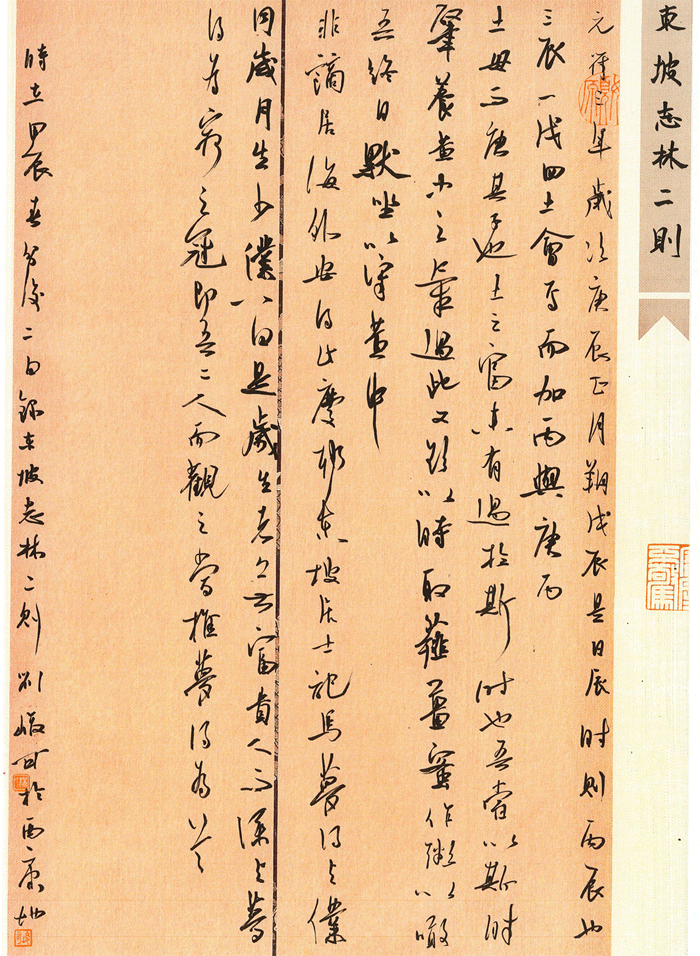 東坡志林二則
元符三年歲次庚辰正月朔戊辰是日辰時則丙辰也
三辰一戊四土會焉而加丙與庚丙
土母而庚其子也土之富未有過於斯時也吾當以斯時
肇養黃中之氣過此又欲以時取薤薑蜜作粥以啖
吾終日默坐以守黃中
非謫居海外安得此慶耶東坡居士記馬夢得與僕
同歲月生少僕八日是歲生者無富貴人而僕與夢
得為窮之冠即吾二人而觀之當推夢得為首
時在甲辰春分後二日錄東坡志林二則劉於西康地